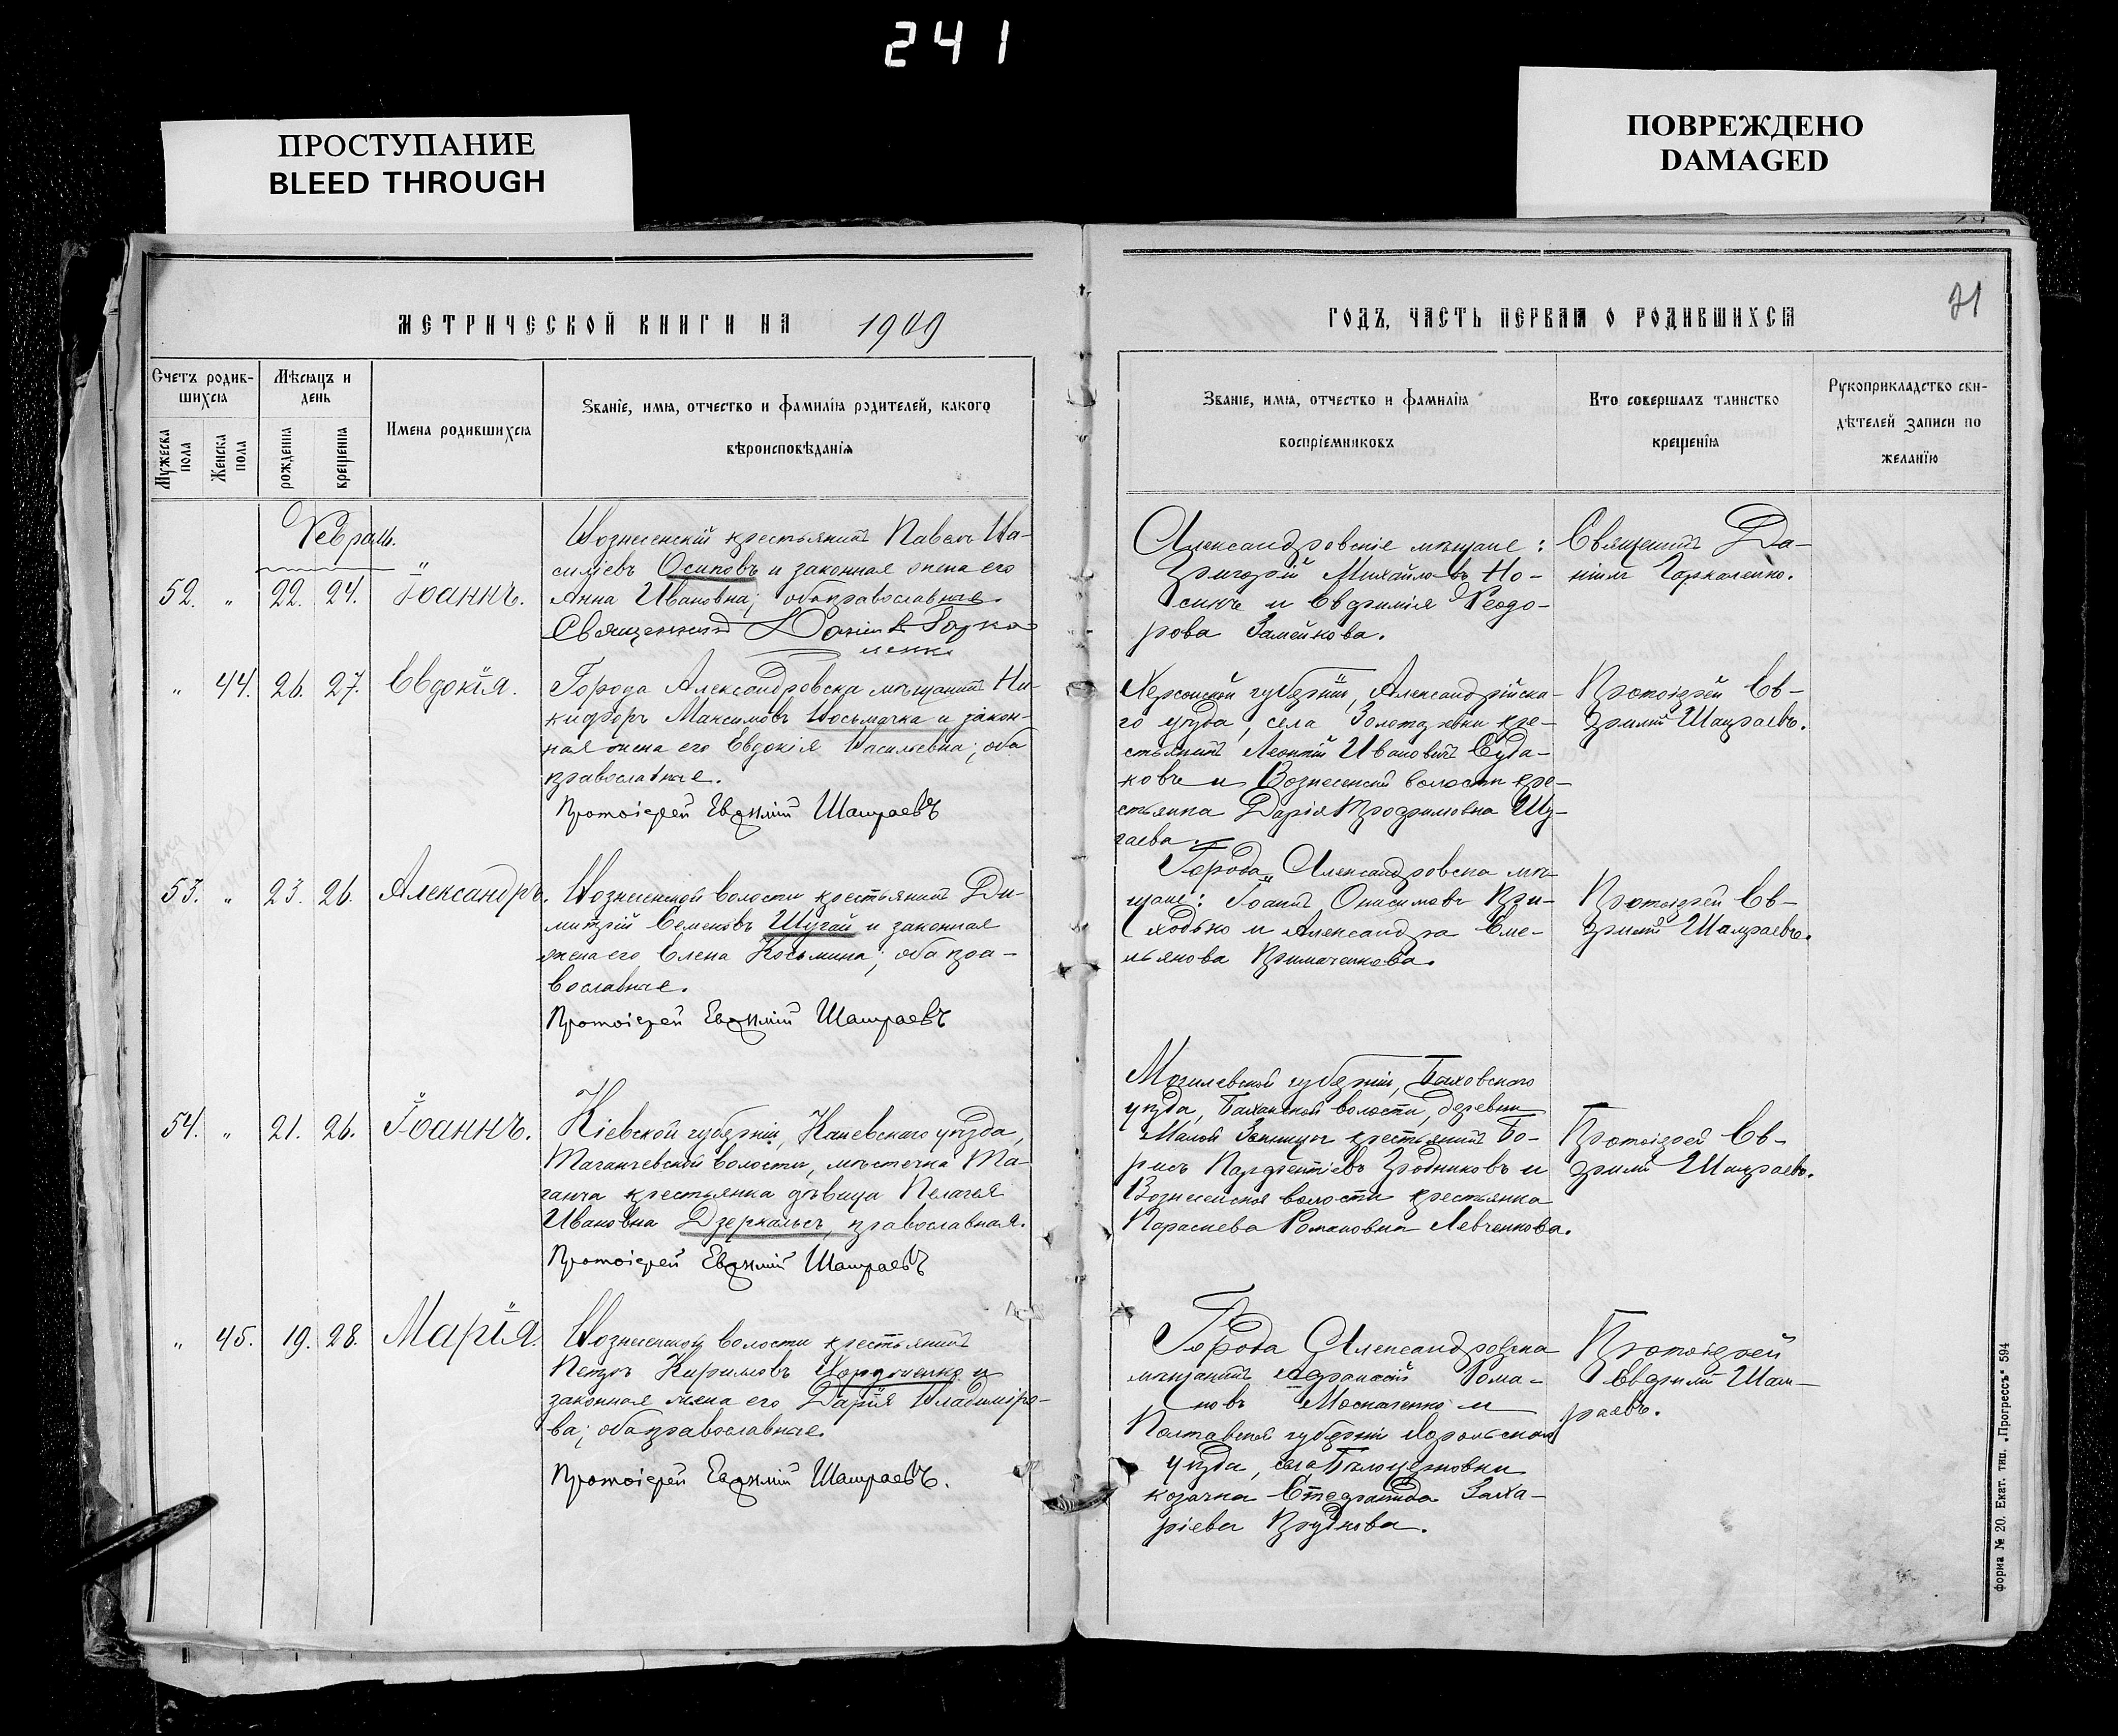 241
ПРОСТУПАНИЕ
BLEED THROUGH
ПОВРЕЖДЕНО
DAMAGED
21
МЕТРИЧЕСКОЙ КНИГИ НА 1909
ГОДЪ, ЧАСТЬ ПЕРВАЯ О РОДИВШИХСЯ
Счетъ родив-
шихся
Мужеска пола
Женска пола
Мѣсяцъ и
день
рожденїя
крещенїя
Имена родившихся
Званїе, имя, отчество и фамилїя родителей, какого
вѣроисповѣданїя
Званїе, имя, отчество и фамилїя
воспрїемниковъ
Кто совершалъ таинство
крещенїя
Рукоприкладство сви-
дѣтелей записи по
желанїю
Февраль.
52. " 22. 24. Іоаннъ.
Вознесенскій крестьянинъ Павелъ Ва-
силіевъ Осиповъ и законная жена его
Анна Ивановна; оба православные.
Священникъ Даніилъ Горка
ленко
Александровскіе мѣщане:
Григорій Михайловъ Но-
сикъ и Евфимія Феодо-
рова Замейкова.
Священникъ Да-
ніилъ Горкаленко.
" 44. 26. 27. Евдокія.
Города Александровска мѣщанинъ Ни-
кифоръ Максимовъ Восьмачка и закон-
ная жена его Евдокія Васильевна; оба
православные.
Протоіерей Евфимій Шамраевъ
Херсонской губерніи, Александрійска-
го уѣзда, села кре-
стьянинъ Леонтій Ивановичъ Суда-
ковъ и Вознесенской волости кре-
стьянка Дарія Трофимовна Шу-
гаева.
Протоіерей Ев-
фимій Шамраевъ.
53. " 23. 26. Александръ.
Вознесенской волости крестьянинъ Ди-
митрій Семеновъ Шугай и законная
жена его Елена Косьмина; оба пра-
вославные.
Протоіерей Евфимій Шамраевъ
Города Александровска мѣ-
щане: Іоаннъ Онисимовъ При-
ходько и Александра Еме-
льянова Примаченкова.
Протоіерей Ев-
фимій Шамраевъ.
54. " 21. 26. Іоаннъ.
Кіевской губерніи, Каневскаго уѣзда,
Таганчевской волости, мѣстечка Та-
ганча крестьянка дѣвица Пелагея
Ивановна Дзеркальсъ, православная.
Протоіерей Евфимій Шамраевъ
Могилевской губерніи, Быховскаго
уѣзда, волости, деревни
Малой крестьянинъ Бо-
рисъ Парфентіевъ Гродниковъ и
Вознесенской волости крестьянка
Параскева Романовна Левченкова.
Протоіерей Ев-
фимій Шамраевъ.
" 45. 19. 28. Марія.
Вознесенской волости крестьянинъ
Петръ Кириловъ и
законная жена его Дарія Владиміро-
ва; оба православные.
Протоіерей Евфимій Шамраевъ.
Города Александровска
мѣщанинъ Рома-
новъ Москаленко и
Полтавской губерніи Хорольскаго
уѣзда, села Бѣлоцерковки
козачка Стефанида Заха-
ріева Прудкова.
Протоіерей
Евфимій Шам-
раевъ.
форма № 20. Екат. тип. „Прогрессъ" 594